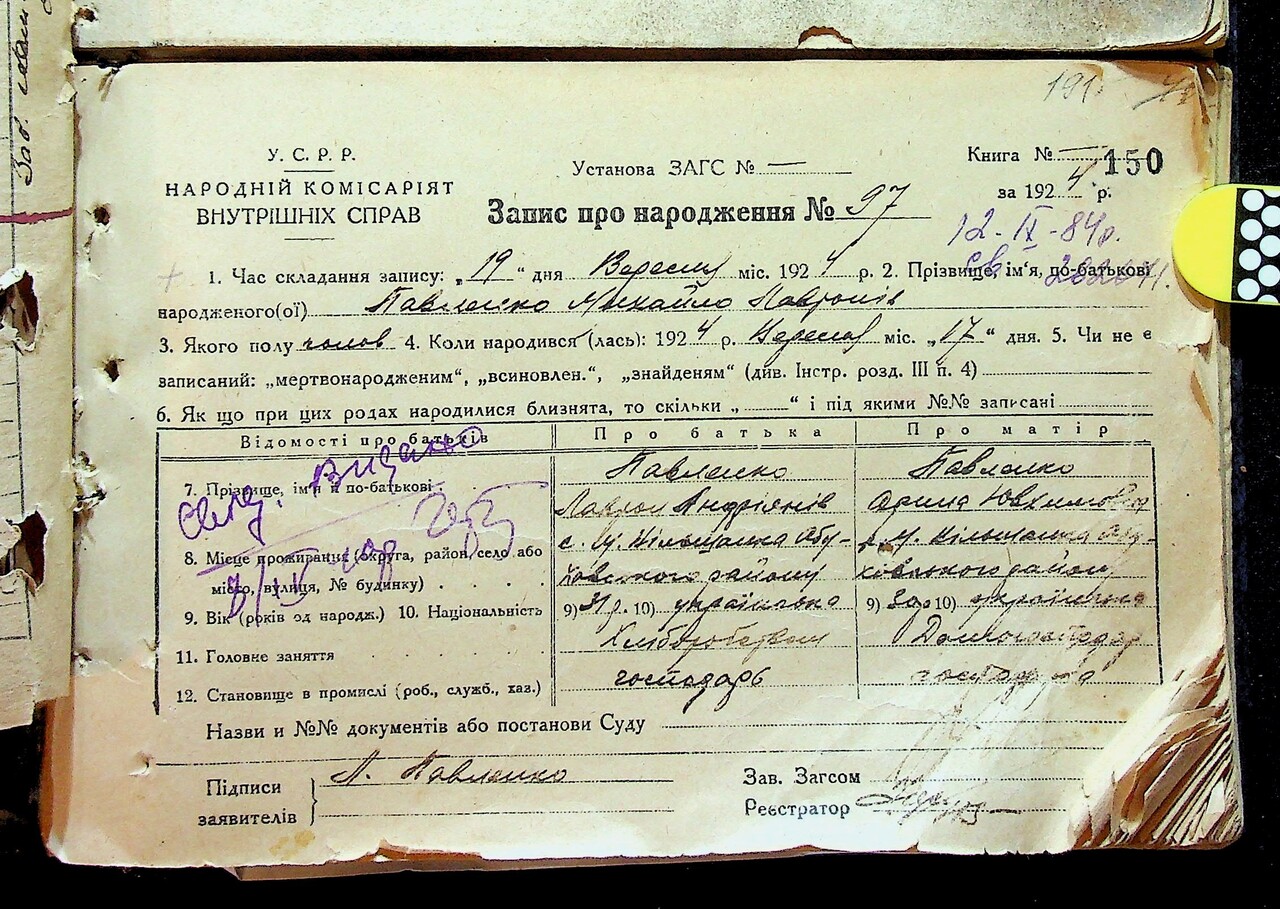 Зав.
191
У. С. Р. Р.
НАРОДНІЙ КОМІСАРІЯТ
ВНУТРІШНІХ СПРАВ
Установа ЗАГС № —
Запис про народження № 97
Книга № — 150
за 1924 р.
12-IX-84р.
св.
1. Час складання запису: „19“ дня Вересня міс. 1924 р. 2. Прізвище, ім‘я, по-батькові
народженого(ої) Павленко Михайло Лавронів
3. Якого полу чолов 4. Коли народився (лась): 1924 р. Вересня міс. „17“ дня. 5. Чи не є
записаний: „мертвонародженим“, „всиновлен.“, „знайденям“ (див. Інстр. розд. III п. 4)
6. Як що при цих родах народилися близнята, то скільки „ “ і під якими №№ записані
Відомості про батьків Про батька Про матір
Видано
7. Прізвище, ім‘я й по-батькові Павленко Павленко
Лаврон Андріянів Орина Ювхимовна
8. Місце проживання (округа, район, село або с. М. Вільшанка Обу- с. М. Вільшанка Обу-
місто, вулиця, № будинку) ховського району ховського району
9. Вік (років од народж.) 10. Національність 9) 31 р. 10) українська 9) 30 р 10) українська
11. Головне заняття Хліборобством Домогосподар
12. Становище в промислі (роб., служб., хаз.) господарь
Назви и №№ документів або постанови Суду
Підписи
заявителів
Л. Павленко
Зав. Загсом
Реєстратор